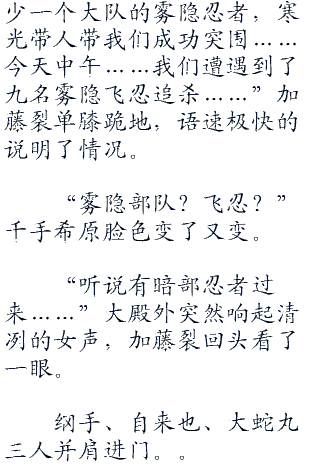 少一个大队的雾隐忍者，寒
光带人带我们成功突围……
今天中午……我们遭遇到了
九名雾隐飞忍追杀……”加
藤裂单膝跪地，语速极快的
说明了情况。
“雾隐部队？飞忍？”
千手希原脸色变了又变。
“听说有暗部忍者过
来……”大殿外突然响起清
冽的女声，加藤裂回头看了
一眼。
纲手、自来也、大蛇丸
三人并肩进门。。